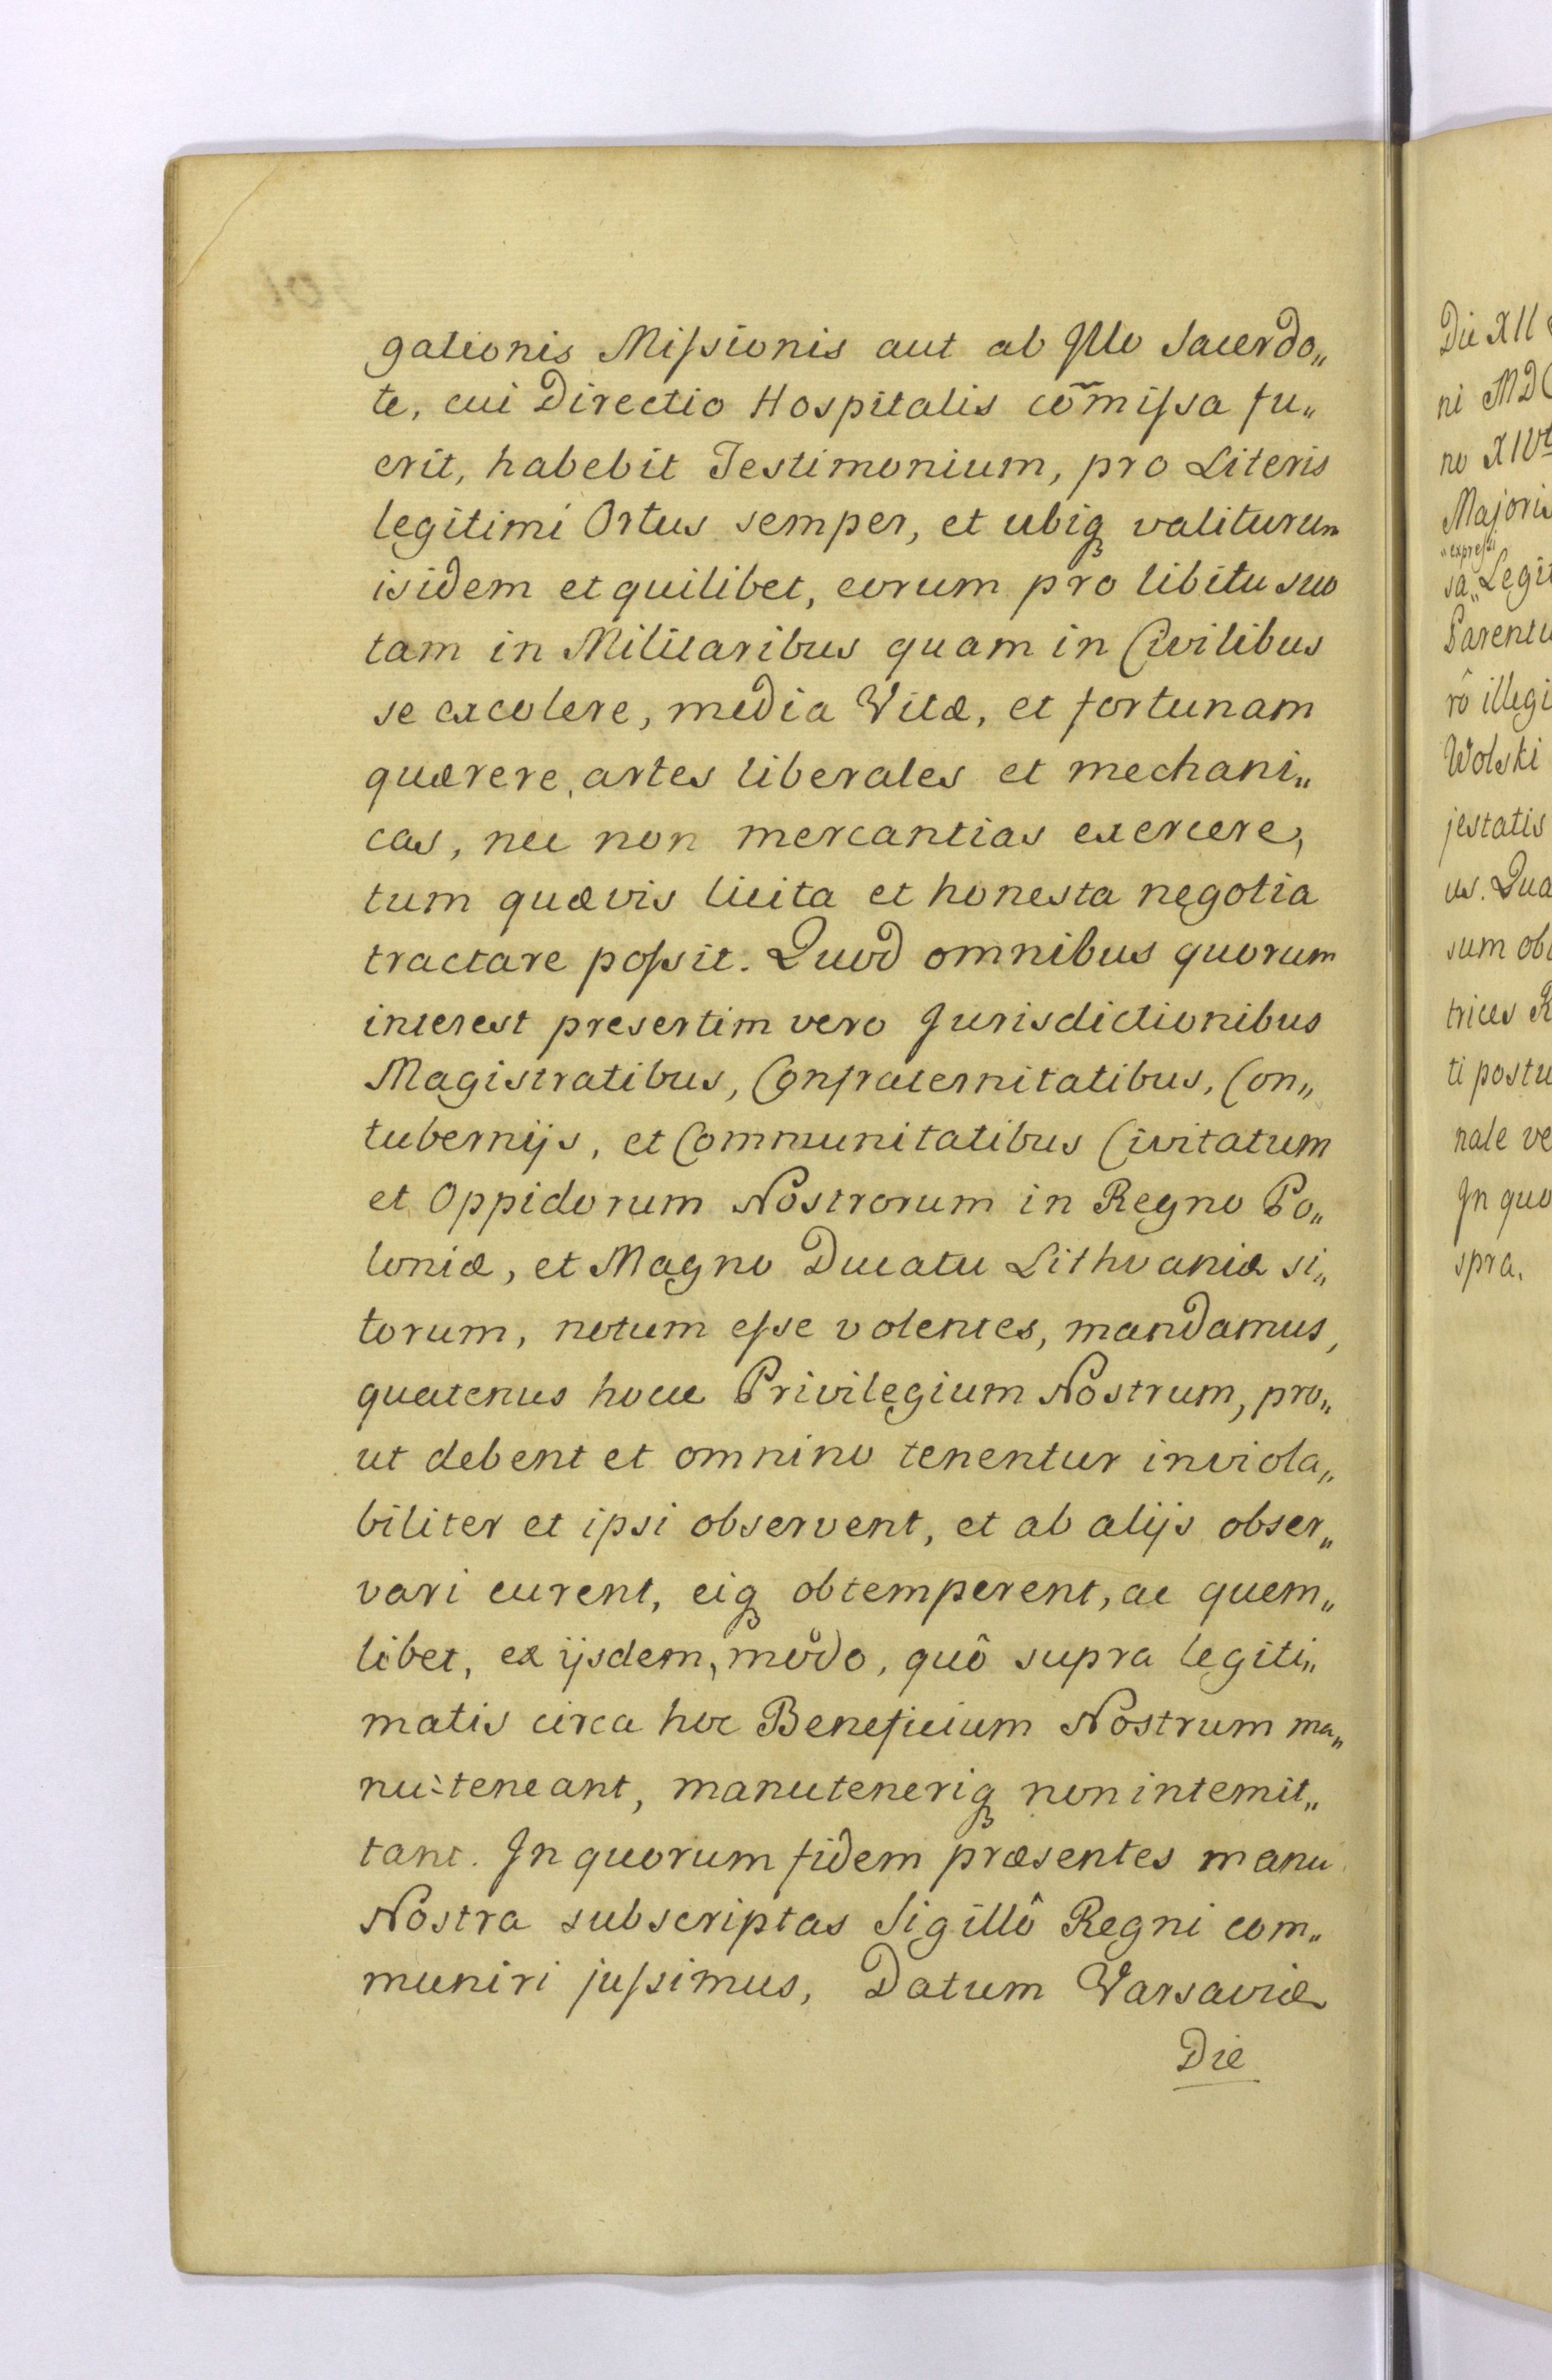 gationis Mißsionis aut ab Illo Sacerdo„
te, cui Directio Hospitalis com̃ißsa fu„
erit, habebit Testimonium, pro Literis
legitimi Ortus semper, et ubiq valiturum
isidem et quilibet, eorum pro libitu suo
tam in Militaribus quam in Civilibus
se excolere, media Vitæ, et fortunam
quærere, artes liberales et mechani„
cas, nec non mercantias exercere,
tum quævis licita et honesta negotia
tractare poßsit. Quod omnibus quorum
interest presertim vero Jurisdictionibus
Magistratibus, Confraternitatibus, Con„
tubernijs, et Communitatibus Civitatum
et Oppidorum Nostrorum in Regno Po„
loniæ, et Magno Ducatu Lithvaniæ si„
torum, notum eſse volentes, mandamus,
quatenus hocce Privilegium Nostrum, pro„
ut debent et omnino tenentur inviola„
biliter et ipsi observent, et ab alijs obser„
vari curent, eiq obtemperent, ac quem„
libet, ex ijsdem, modo, quô supra legiti„
matis circa hoc Beneficium Nostrum ma„
nu-teneant, manuteneriq non intemit„
tant. In quorum fidem præsentes manu
Nostra subscriptas Sigillô Regni com„
muniri juſsimus, Datum Varsaviæ
Die
Die XII
ni MDC
no XIVt
Majoris
„expreſsi
sa„ Legit
Parentu
rô illegi
Wolski
jestatis
us. Qua
sum ob
trices R
ti postu
nale ve
In quo
spra.